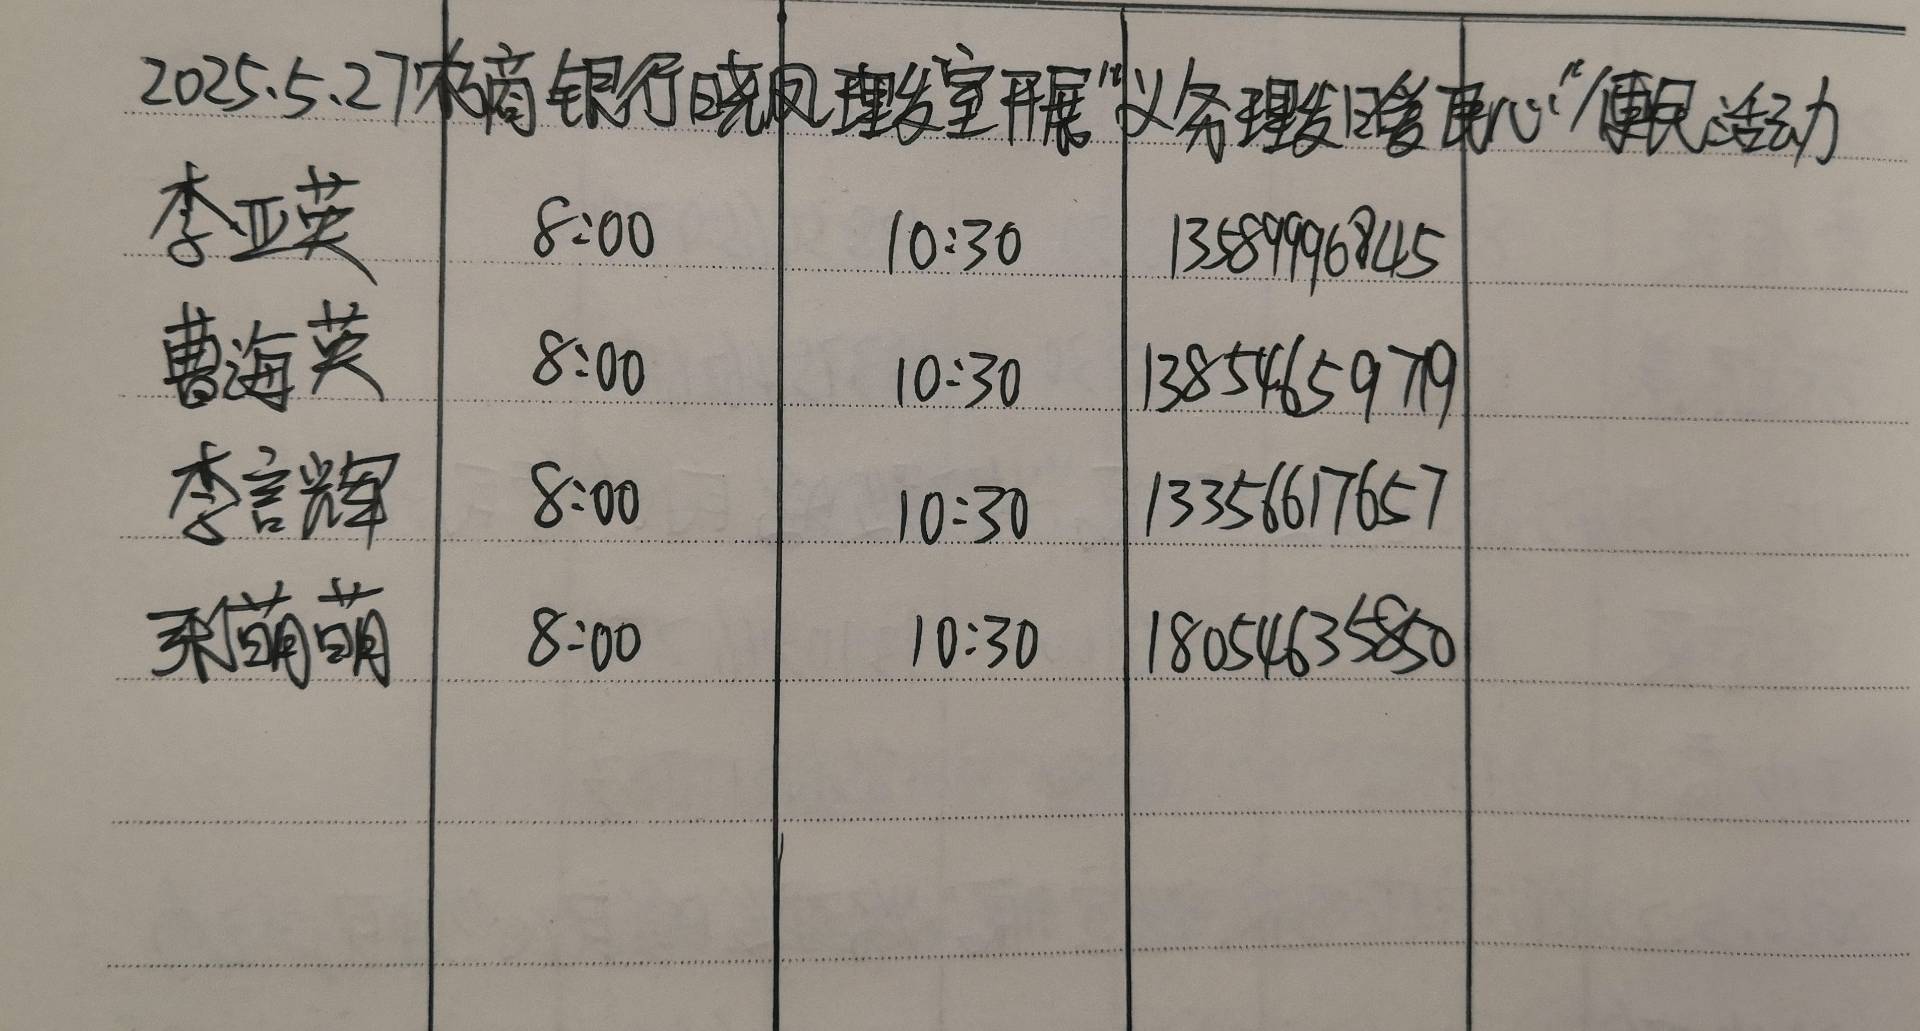 2025.5.27农商银行晓凤理发室开展“义务理发日暖民心”便民活动
李亚英 8:00 10:30 13589996845
曹海英 8:00 10:30 13854659719
李言辉 8:00 10:30 13356617657
萌萌 8:00 10:30 18054635850